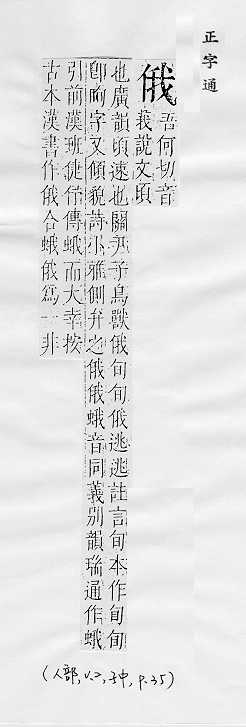 正字通
俄
吾何切音
莪說文頃
也廣韻頃速也關尹子鳥獸俄旬旬俄逃逃註言旬本作旬旬
卽眴字又傾貌詩小雅側弁之俄俄蛾音同義別韻瑞通作蛾
引前漢班倢伃傳蛾而大幸按
古本漢書作俄合蛾俄爲一非
(人部, v.2, 子中, p.35)